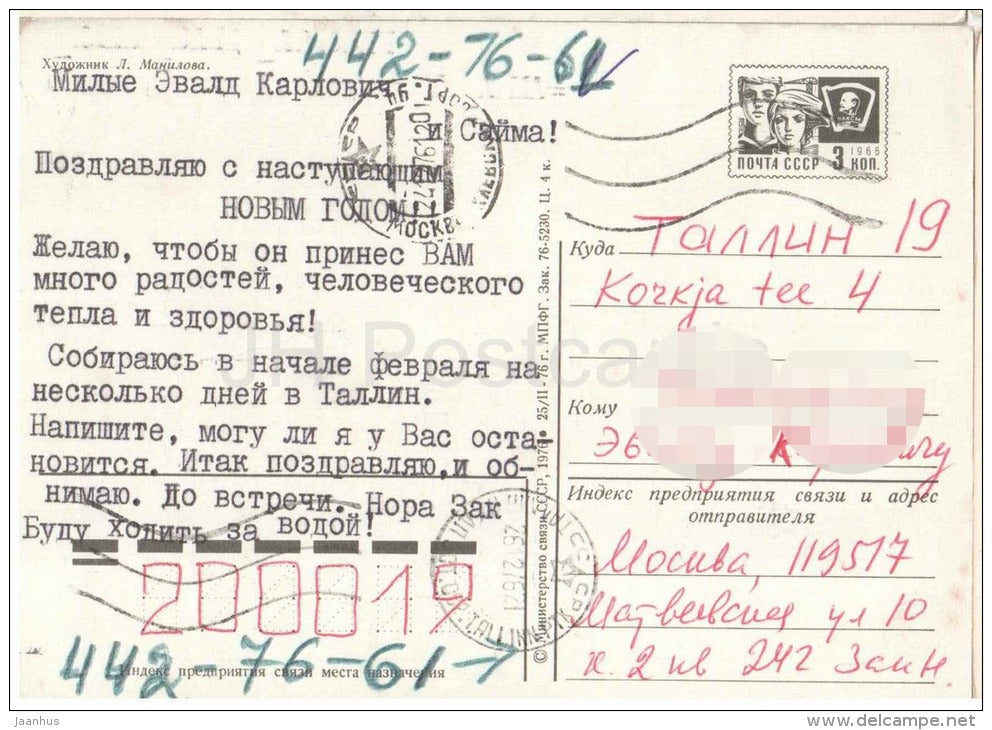 442-76-61
Художник Л. Манилова.
Милые Эвалд Карлович
и Сайма!
Поздравляю с наступающим
НОВЫМ ГОДОМ
Желаю, чтобы он принес ВАМ
много радостей, человеческого
тепла и здоровья!
Собираюсь в начале февраля на
несколько дней в Таллин.
Напишите, могу ли я у Вас оста-
новится. Итак поздравляю,и об-
нимаю. До встречи. Нора Зак
Буду ходить за водой!
200019
442-76-61
Индекс предприятия связи места назначения
© Министерство связи СССР, 1976 25/II-76 г. МПФГ. Зак. 76-5230. Ц. 4 к.
ПОЧТА СССР 3 КОП.
1966
МОСКВА
TALLINN
Куда Таллин 19
Kozkja tee 4
Кому
Индекс предприятия связи и адрес
отправителя
Москва, 119517
Матвеевская ул 10
к. 2 кв 242 Зак Н.
JH Postcards
Jaanhus
www.delcampe.net